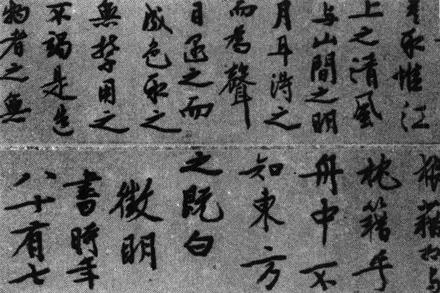 莫取惟江
上之清風
与山間之明
月耳得之
而為聲
目遇之而
成色取之
無禁用之
不竭是造
物者之無
枕藉乎
舟中不
知東方
之既白
徵明
書時年
八十有七